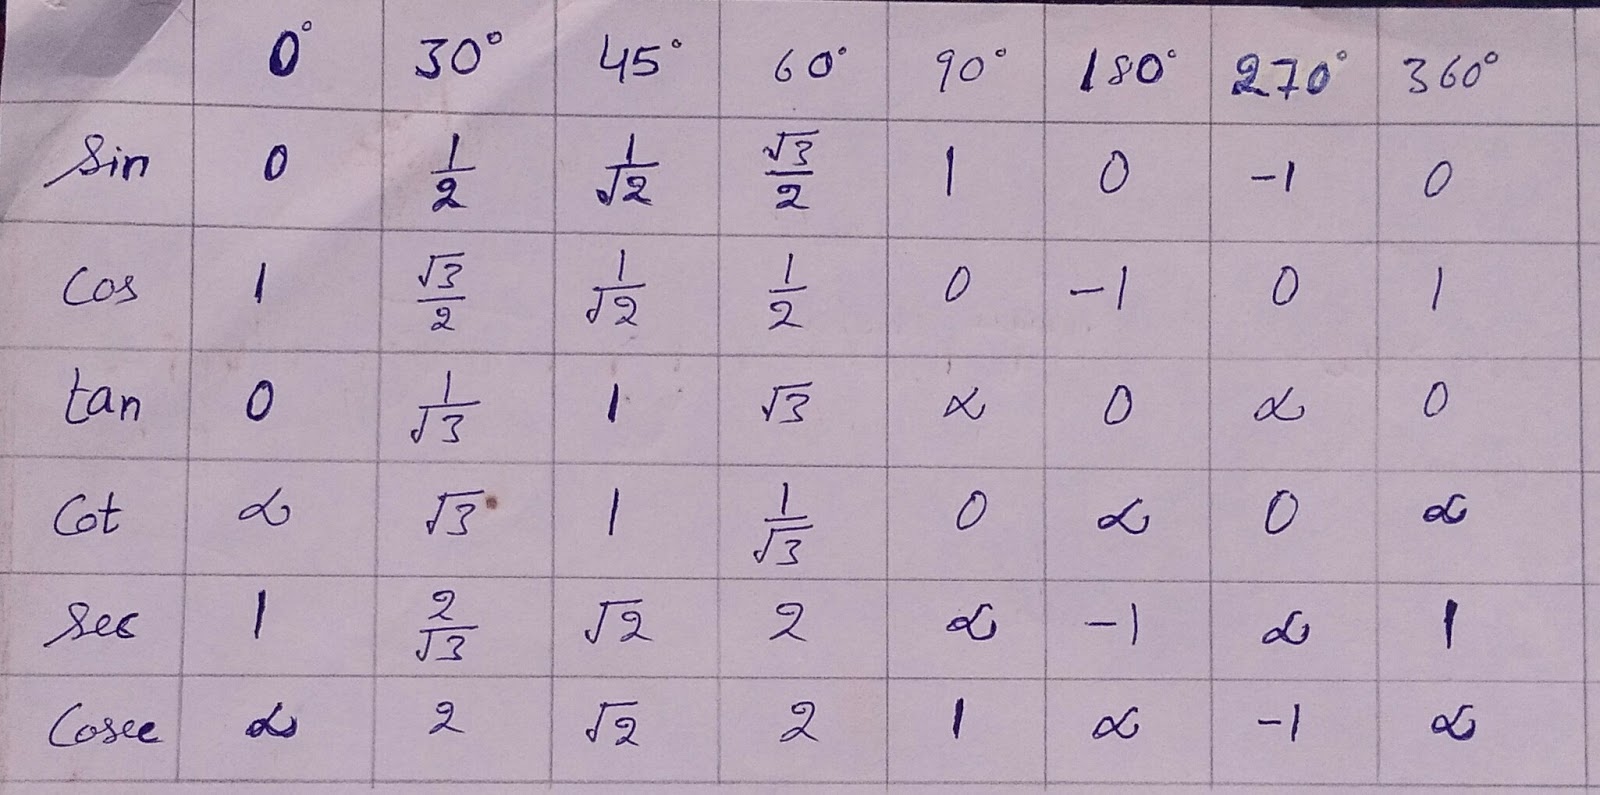 0° 30° 45° 60° 90° 180° 270° 360°
Sin 0 1/2 1/√2 √3/2 1 0 -1 0
Cos 1 √3/2 1/√2 1/2 0 -1 0 1
tan 0 1/√3 1 √3 ∝ 0 ∝ 0
Cot ∝ √3 1 1/√3 0 ∝ 0 ∝
Sec 1 2/√3 √2 2 ∝ -1 ∝ 1
Cosec ∝ 2 √2 2 1 ∝ -1 ∝